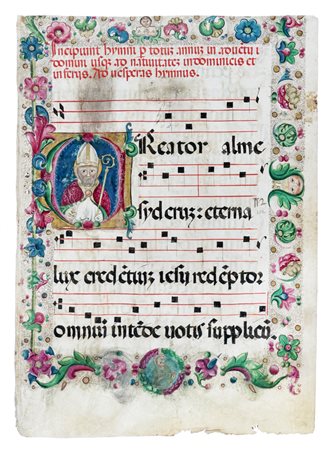 Incipiunt hymni p totuz annuz in aduetu
domini usqz ad natiuitatez in dominicis et
in feriis. Ad uesperas hymnus.
Creator alme
syderuz: eterna
lux credetiuz iesu redeptor
omniu intede uotis supplicu.